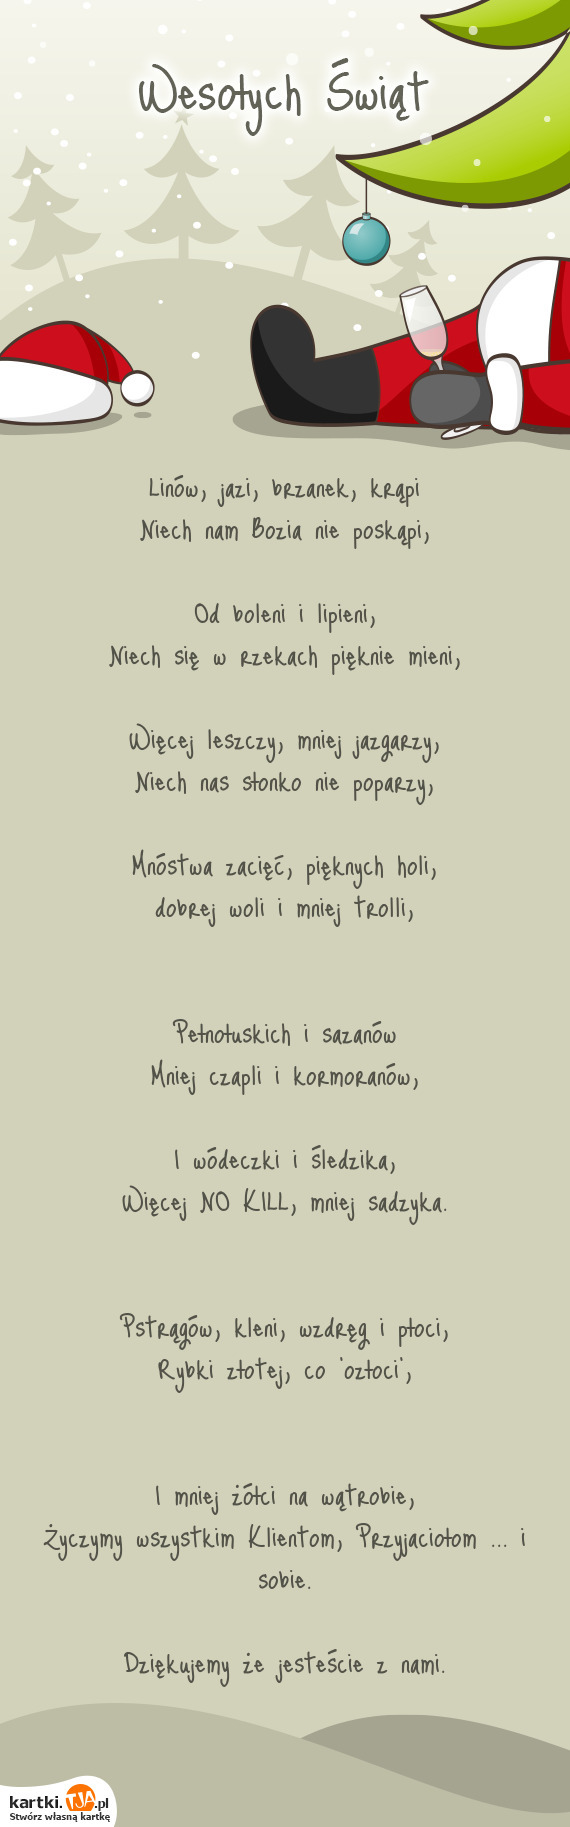 Wesołych Świąt
Linów, jazi, brzanek, krąpi
Niech nam Bozia nie poskąpi,
Od boleni i lipieni,
Niech się w rzekach pięknie mieni,
Więcej leszczy, mniej jazgarzy,
Niech nas słonko nie poparzy,
Mnóstwa zacięć, pięknych holi,
dobrej woli i mniej trolli,
Pełnołuskich i sazanów
Mniej czapli i kormoranów,
I wódeczki i śledzika,
Więcej NO KILL, mniej sadzyka.
Pstrągów, kleni, wzdręg i płoci,
Rybki złotej, co 'ozłoci',
I mniej żółci na wątrobie,
Życzymy wszystkim Klientom, Przyjaciołom ... i
sobie.
Dziękujemy że jesteście z nami.
kartki.TJA.pl
Stwórz własną kartkę